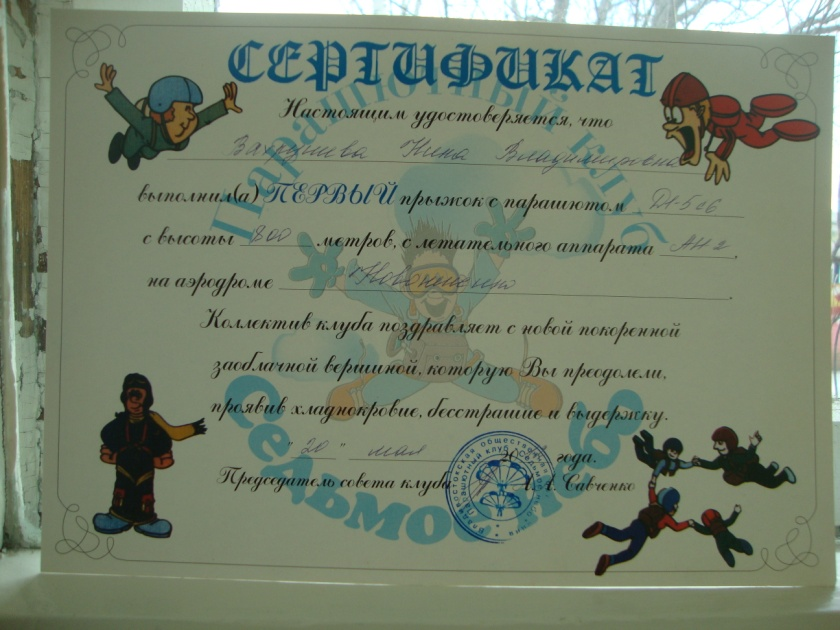 СЕРТИФИКАТ
Настоящим удостоверяется, что
Нина Владимировна
выполнил(а) ПЕРВЫЙ прыжок с парашютом
с высоты 800 метров, с летательного аппарата АН 2.
на аэродроме
Коллектив клуба поздравляет с новой покоренной
заоблачной вершиной, которую Вы преодолели,
проявив хладнокровие, бесстрашие и выдержку.
"20" мая 20 года.
Председатель совета клуба Савченко
Парашютный клуб
Седьмое небо